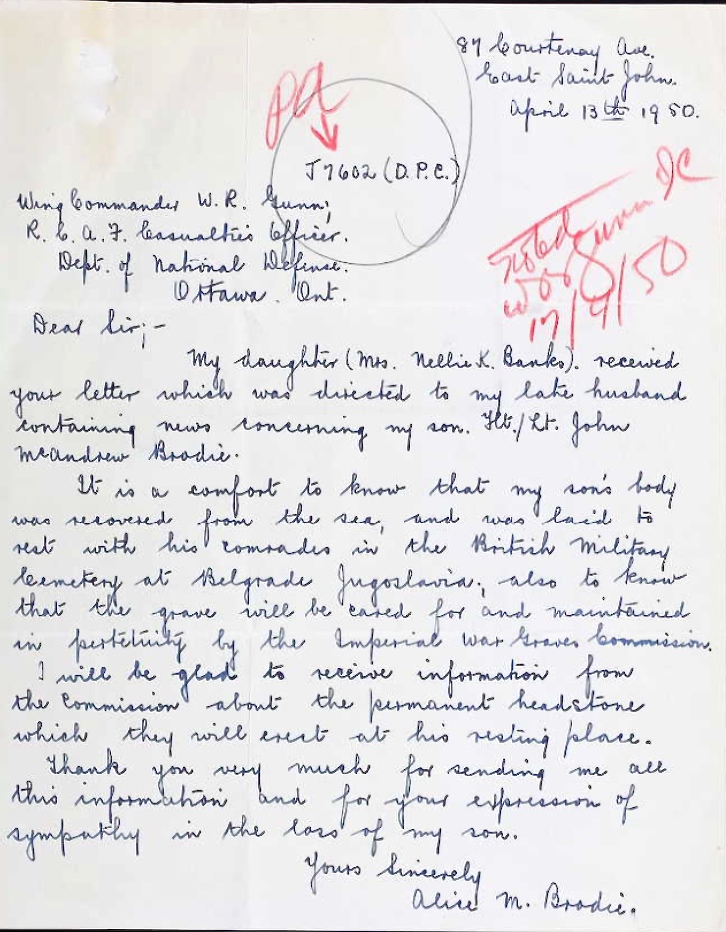 87 Courtenay Ave.
East Saint John.
April 13th 1950.
PA
J7602 (D.P.C.)
Wing Commander W. R. Gunn;
R. C. A. F. Casualties Officer.
Dept. of National Defense.
Ottawa. Ont.
Noted
Gunn
17/4/50
Dear Sir;-
My daughter (Mrs. Nellie K. Banks). received
your letter which was directed to my late husband
containing news concerning my son. Flt./Lt. John
McAndrew Brodie.
It is a comfort to know that my son's body
was recovered from the sea, and was laid to
rest with his comrades in the British Military
Cemetery at Belgrade Jugoslavia; also to know
that the grave will be cared for and maintained
in pertetuity by the Imperial War Graves Commission.
I will be glad to receive information from
the Commission about the permanent headstone
which they will erect at his resting place.
Thank you very much for sending me all
this information and for your expression of
sympathy in the loss of my son.
Yours Sincerely
Alice M. Brodie.